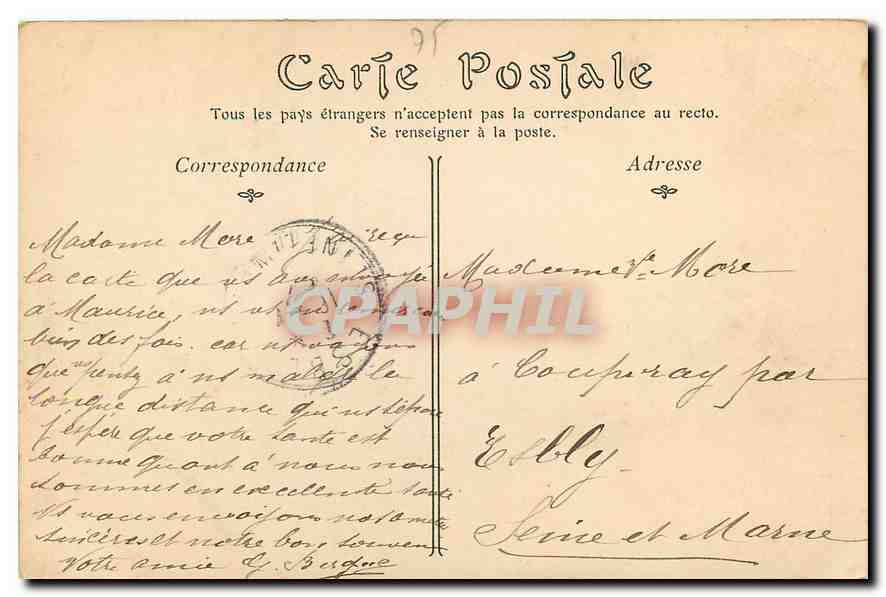 75
Carte Postale
Tous les pays étrangers n'acceptent pas la correspondance au recto.
Se renseigner à la poste.
Correspondance
Madame More reçu
la carte que vs avez envoyée
à Maurice, ns vs
bien des fois. car ns voyons
que vs pensez à ns malgré la
longue distance qui ns sépare
j'espère que votre santé est
bonne quant à nous nous
sommes en excellente santé
Ns vous envoyons nos amitiés
sincères et notre bon souvenir
Votre amie G. Bergue
Adresse
Madame Vve More
à Coupvray par
Esbly
Seine et Marne
CPAPHIL